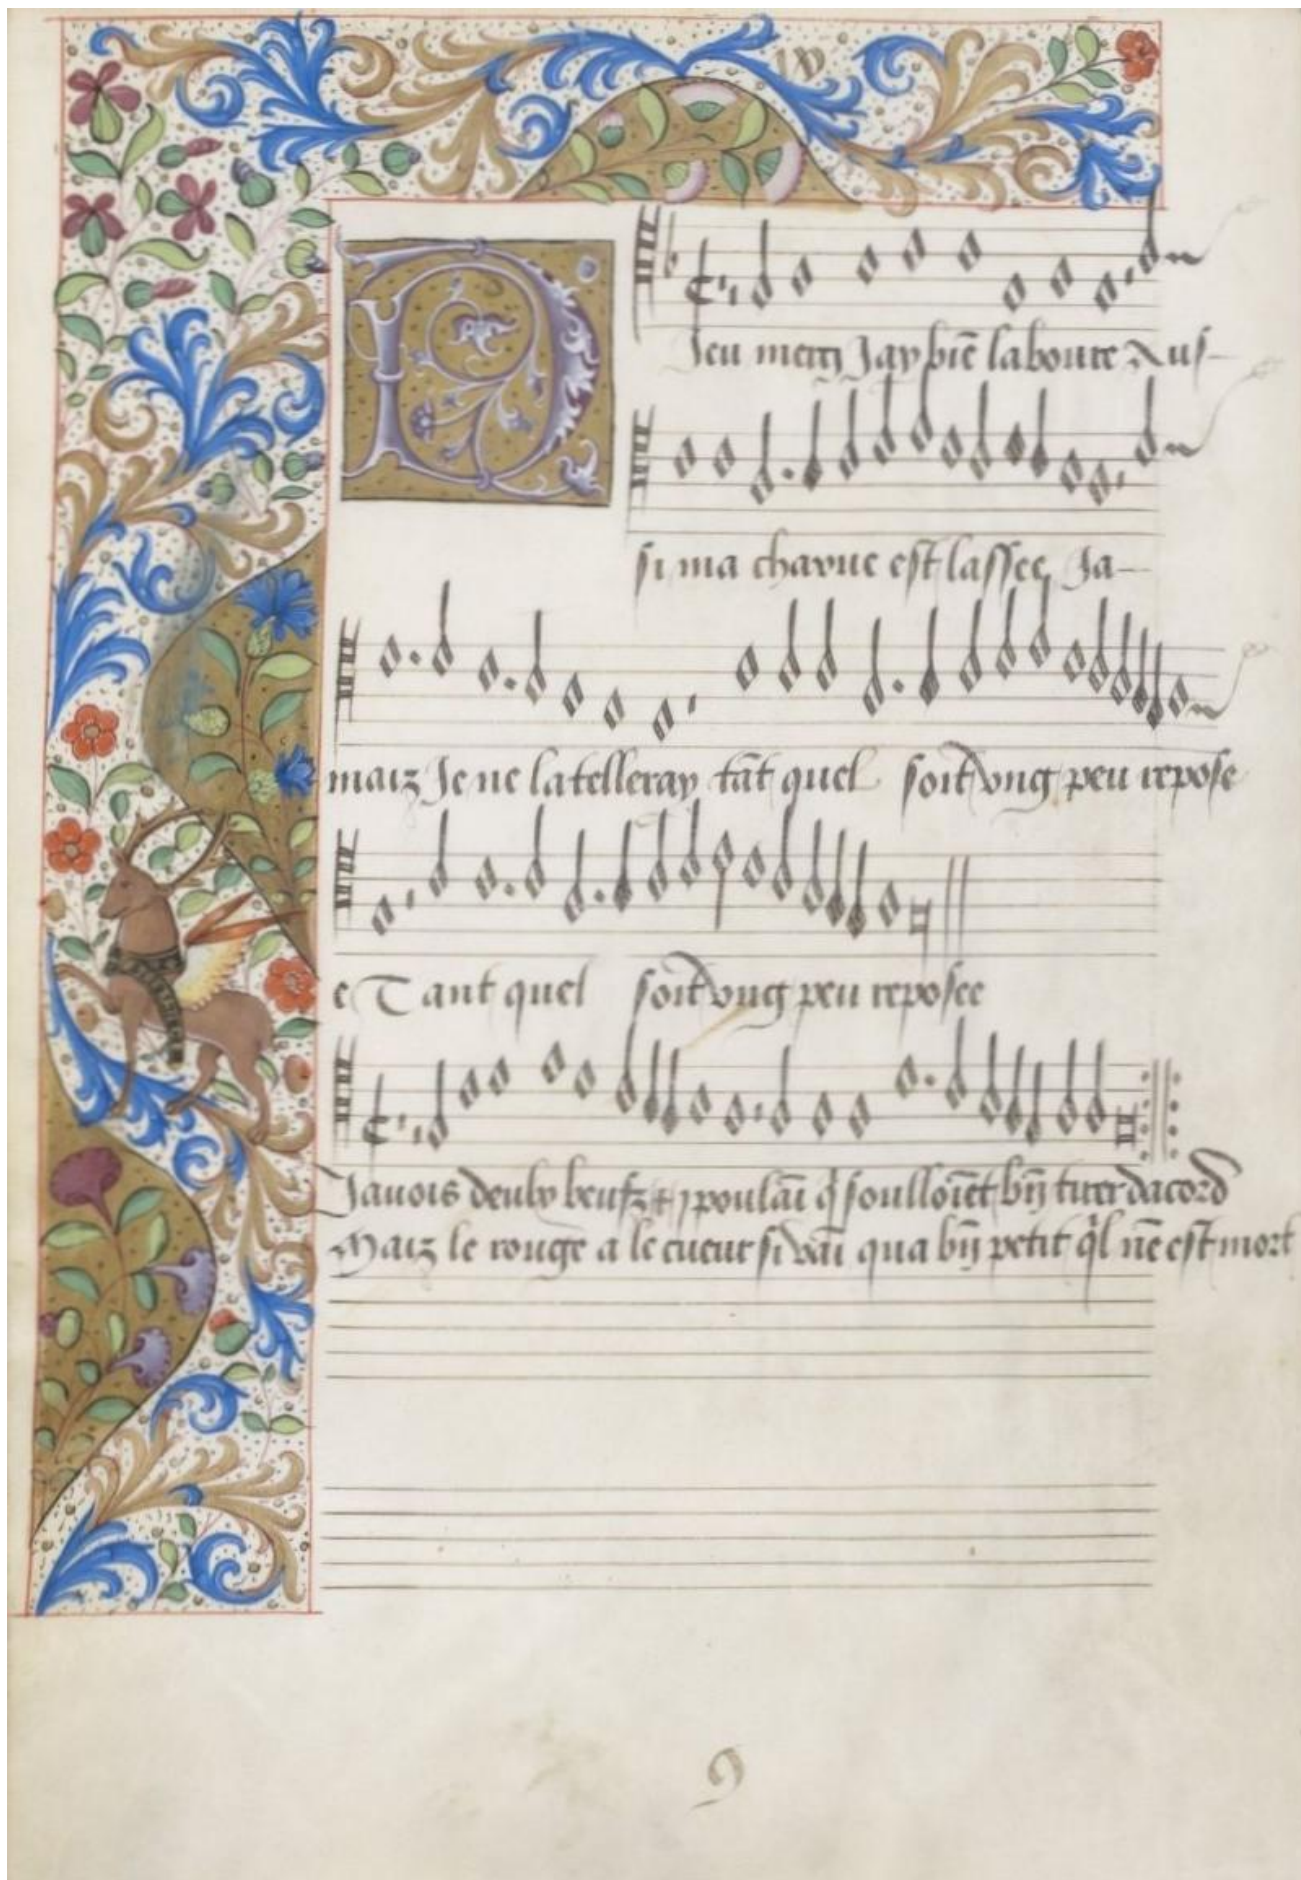 Dieu mercy Jay biē laboure Aus-
si ma charue est lassee Ja-
maiz Je ne latelleray tāt quel soit ung peu repose
e Tant quel soit ung peu reposee
Javois deulx beufz ⁊ j poulaī q̇ soulloīēt bīj tirer dacord
Maiz le rouge a le cueur si vaī qua bīj petit q̇l nē est mort
9